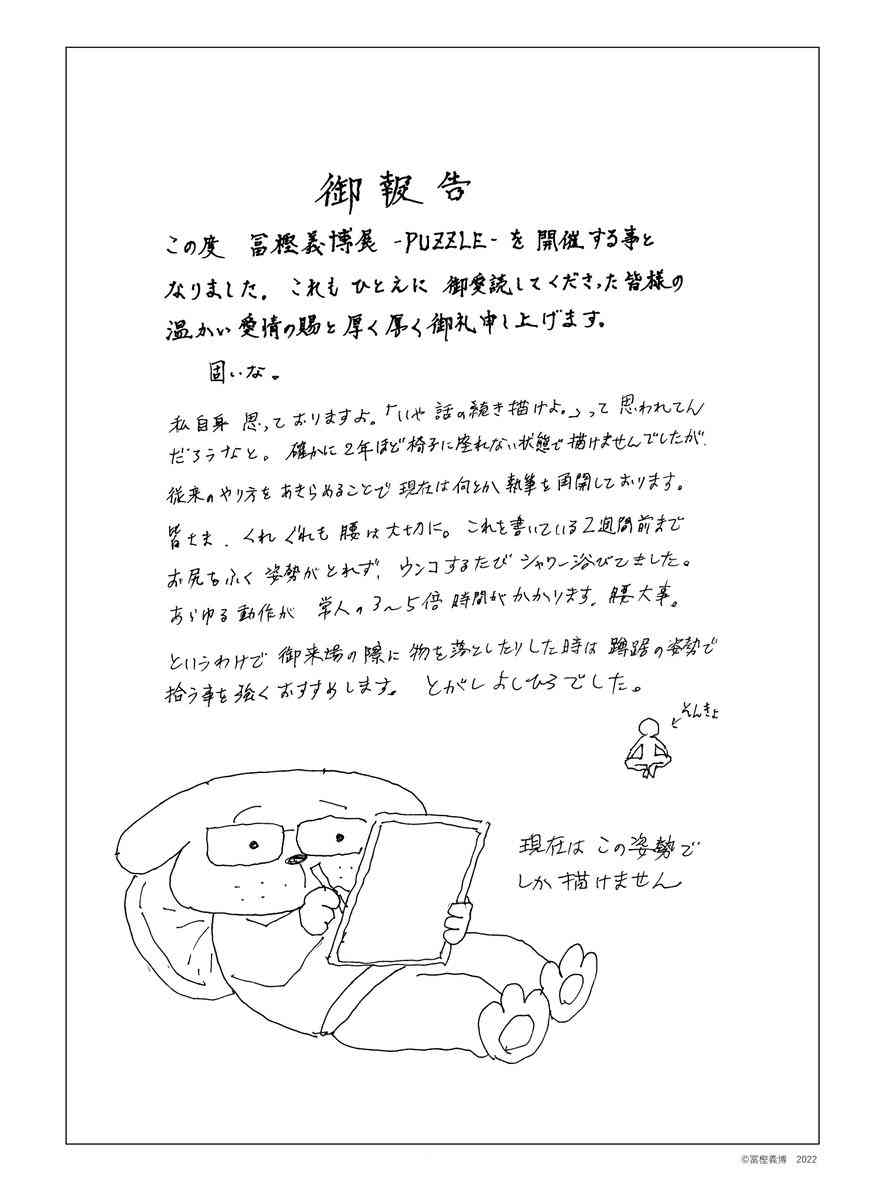 御報告
この度 冨樫義博展 -PUZZLE- を開催する事と
なりました。これもひとえに 御愛読してくださった皆様の
温かい愛情の賜と厚く厚く御礼申し上げます。
固いな。
私自身 思っておりますよ。「いや 話の続き描けよ。」って 思われてん
だろうなと。確かに2年ほど椅子に座れない状態で描けませんでしたが、
従来のやり方をあきらめることで現在は何とか執筆を再開しております。
皆さま、くれぐれも 腰は大切に。これを書いている2週間前まで
お尻をふく 姿勢がとれず、ウンコするたび シャワー浴びてました。
あらゆる動作が 常人の3〜5倍 時間がかかります。腰大事。
というわけで 御来場の際に 物を落としたりした時は 蹲踞の姿勢で
拾う事を強くおすすめします。 とがし よしひろでした。
そんきょ
現在は この姿勢で
しか 描けません
©冨樫義博 2022